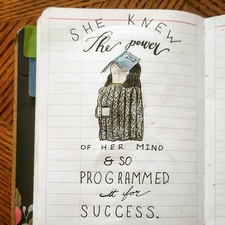 SHE KNEW
The power
OF HER MIND
& SO
PROGRAMMED
it for
SUCCESS.